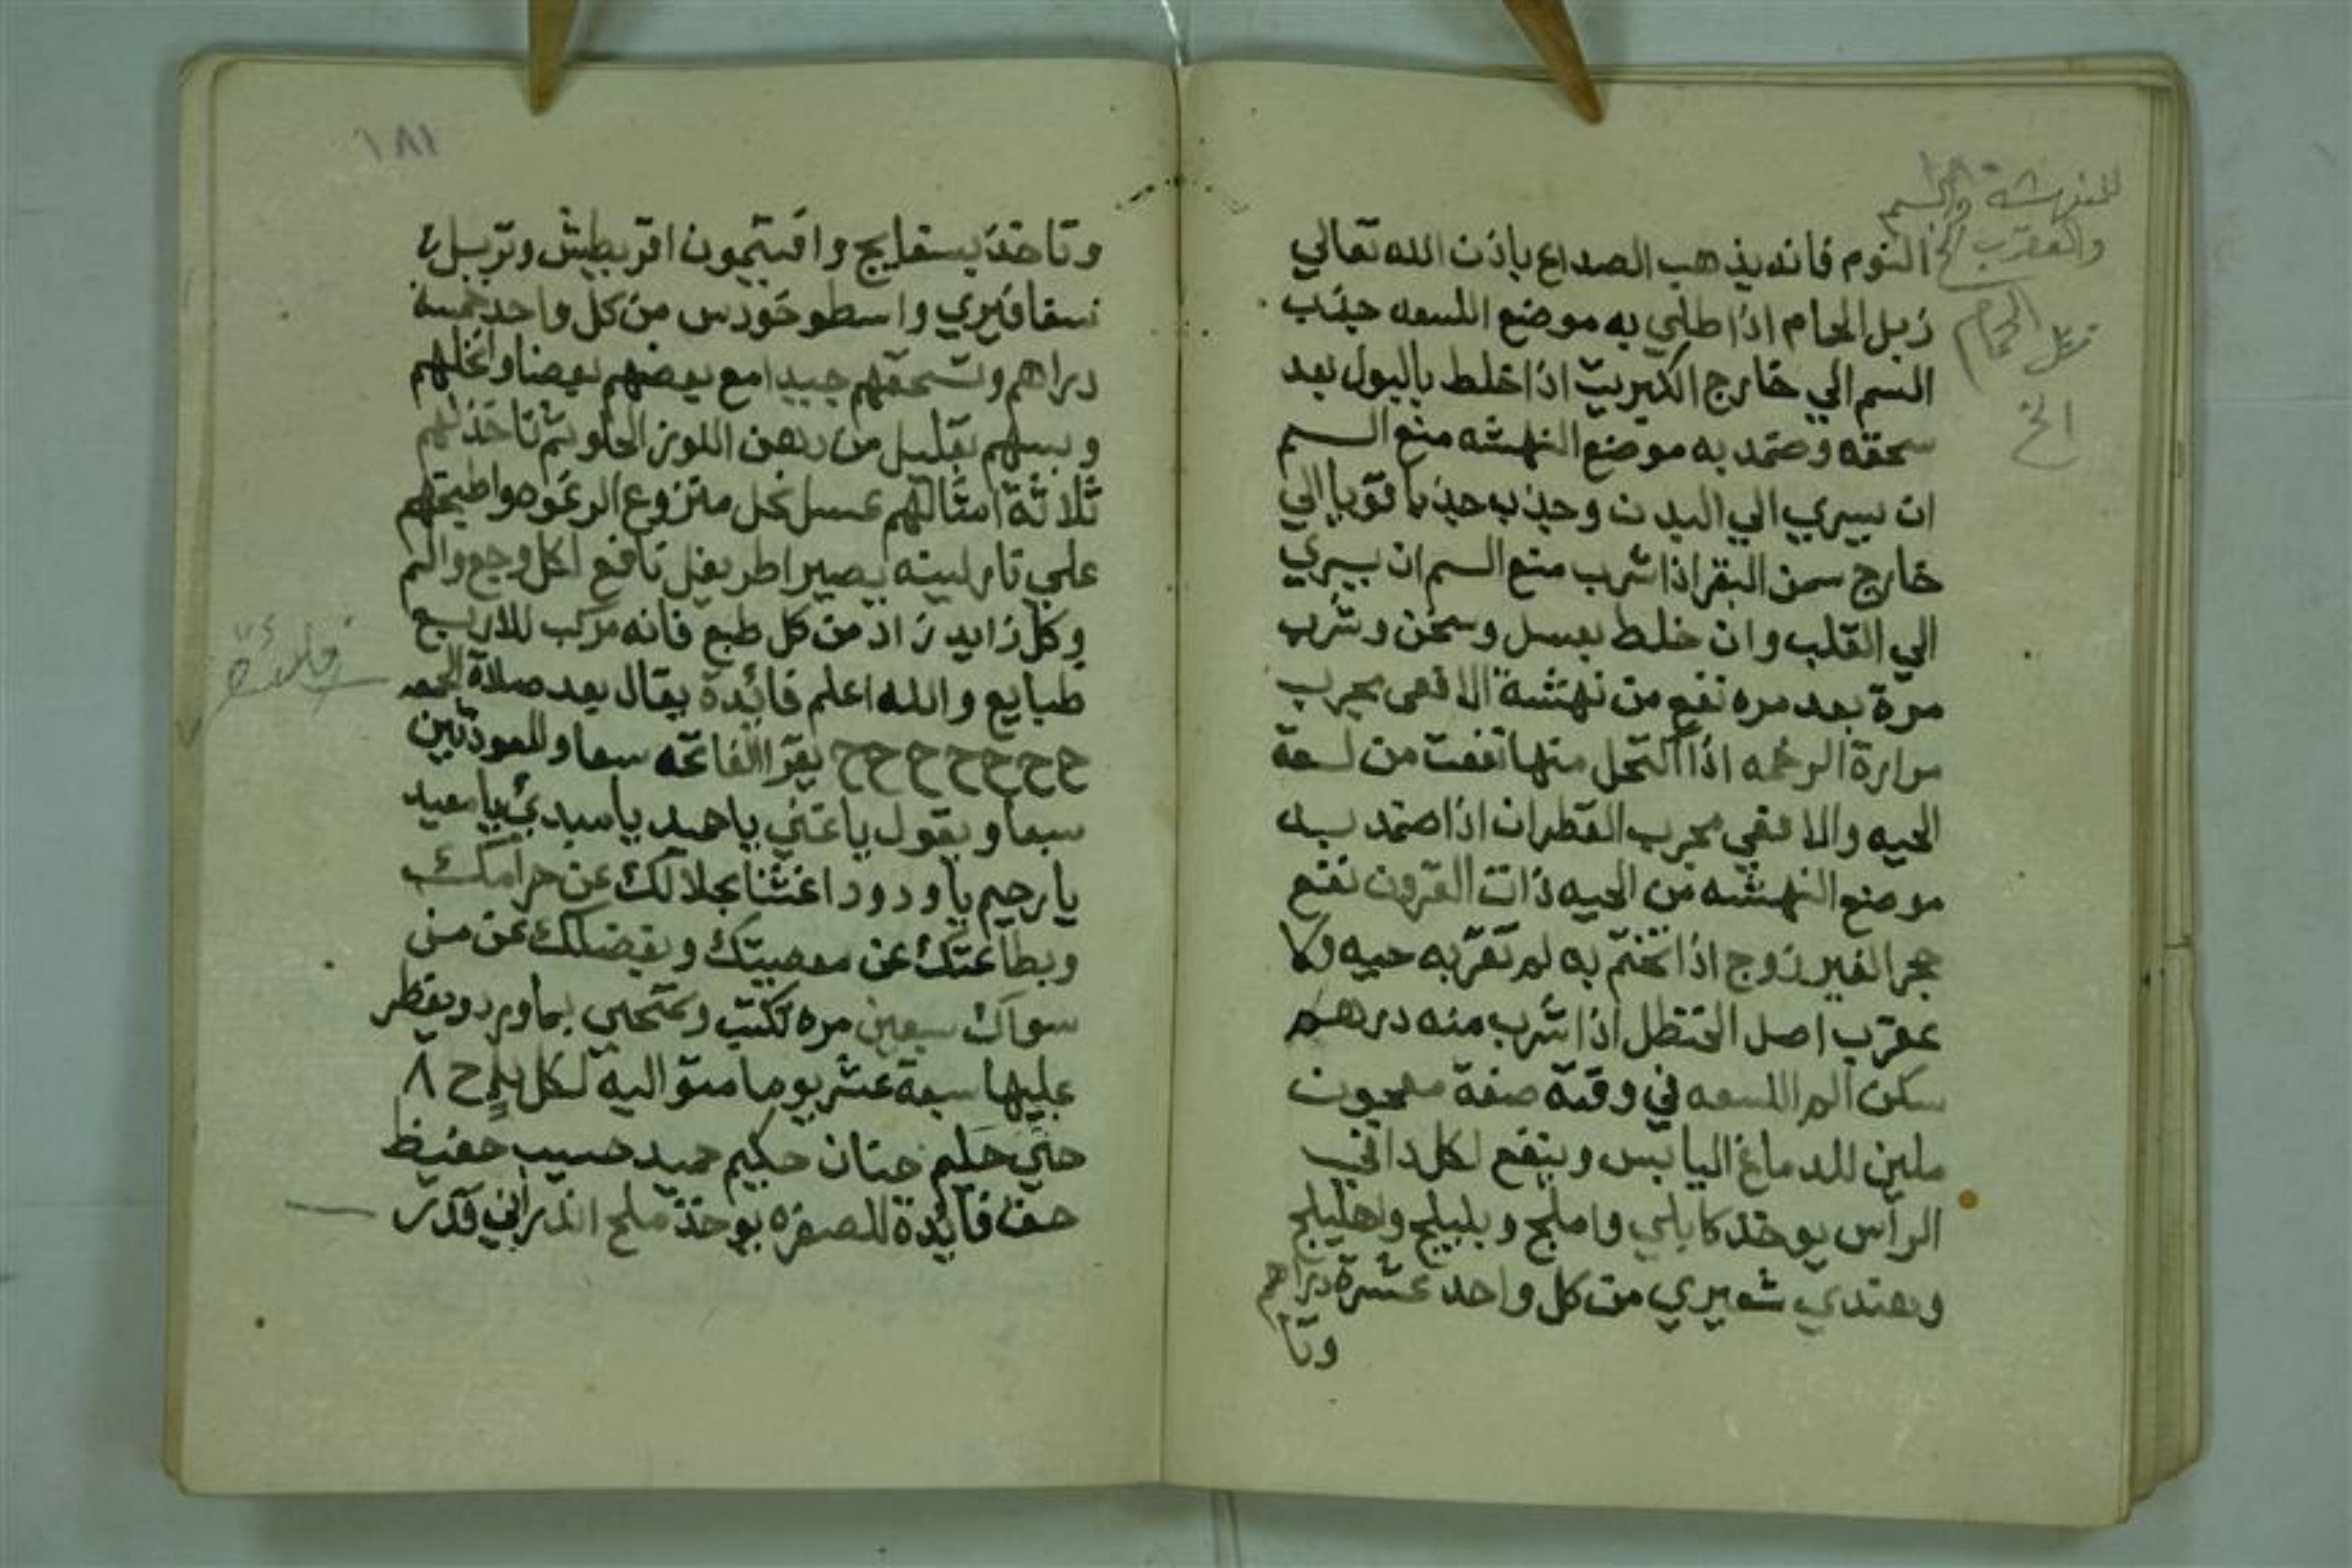 ١٨٠
للنهشة والسم
والعقرب الخ
زبل الحمام
الخ
النوم فانه يذهب الصداع باذن الله تعالي
زبل الحمام اذا طلي به موضع اللسعه جذب
السم الي خارج الكبريت اذا خلط بالبول بعد
سحقه وضمد به موضع النهشه منع السم
ان يسري الي البدن وجذب جذبا قويا الي
خارج سمن البقر اذا شرب منع السم ان يسري
الي القلب وان خلط بعسل وسخن وشرب
مرة بعد مره نفع من نهشة الافعى مجرب
مرارة الرخمه اذا اكتحل منها نفعت من لسعة
الحيه والافعي مجرب القطران اذا ضمد به
موضع النهشه من الحيه ذات القرون نفع
حجر الفيرزوج اذا تختم به لم تقربه حيه ولا
عقرب اصل الحنظل اذا شرب منه درهم
سكن الم اللسعه في وقته صفة معجون
ملين للدماغ اليابس وينفع لكل دا في
الراس يوخذ كابلي واملج وبليلج واهليلج
وهندي شعيري من كل واحد عشرة دراهم
وتا
١٨١
وتاخذ بسفايج وافتيمون اقريطيش وتربل
واسطوخودس من كل واحد خمسة
دراهم وتسحقهم جيدا مع بعضهم بعضا وانخلهم
وبسهم بقليل من دهن اللوز الحلو ثم تاخذ لهم
ثلاثة امثالهم عسل نحل منزوع الرغوه واطبخهم
علي نار لينه يصير اطريفل نافع لكل وجع والم
وكل زايد زاد من كل طبع فانه مركب للاربع
طبايع والله اعلم فائدة يقال بعد صلاة الجمعه
ح ح ح ح ح ح ح يقرا الفاتحه سبعا والمعوذتين
سبعا ويقول يا غني يا حميد يا مبدئ يا معيد
يا رحيم يا ودود اغننا بحلالك عن حرامك
وبطاعتك عن معصيتك وبفضلك عن من
سواك سبعين مره تكتب وتمتحي بماورد ويفطر
عليها سبعة عشر يوما متواليه لكل ح ٨
حي حليم حنان حكيم حميد حسيب حفيظ
حق فائدة للصفره يوخذ ملح اندراني قدر
فائدة